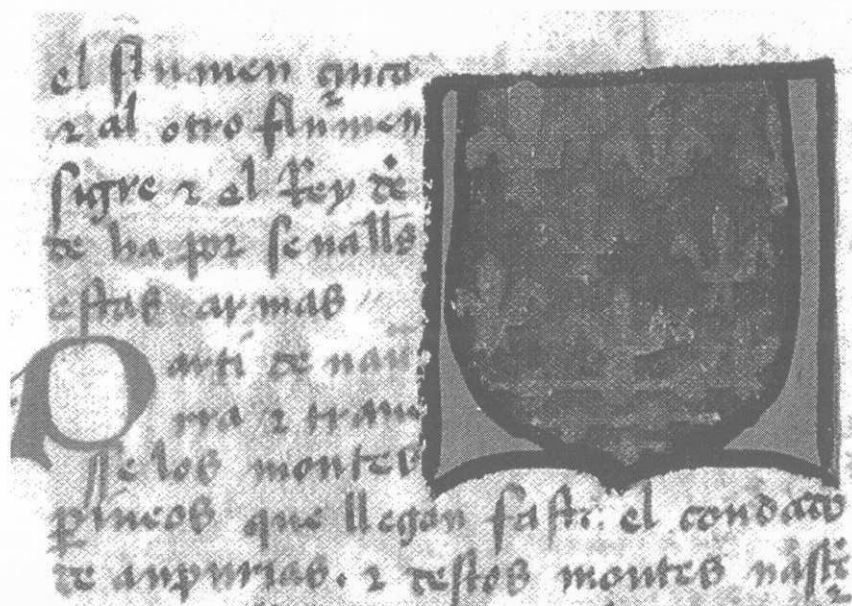 el flumen çinca
⁊ al otro flumen
sigre ⁊ el Rey de
de ha por senalls
estas armas
Parti de nau
rra ⁊ traue
sse los montes
pineos que llegan fasta el condado
de anpurias. ⁊ destos montes nasçe